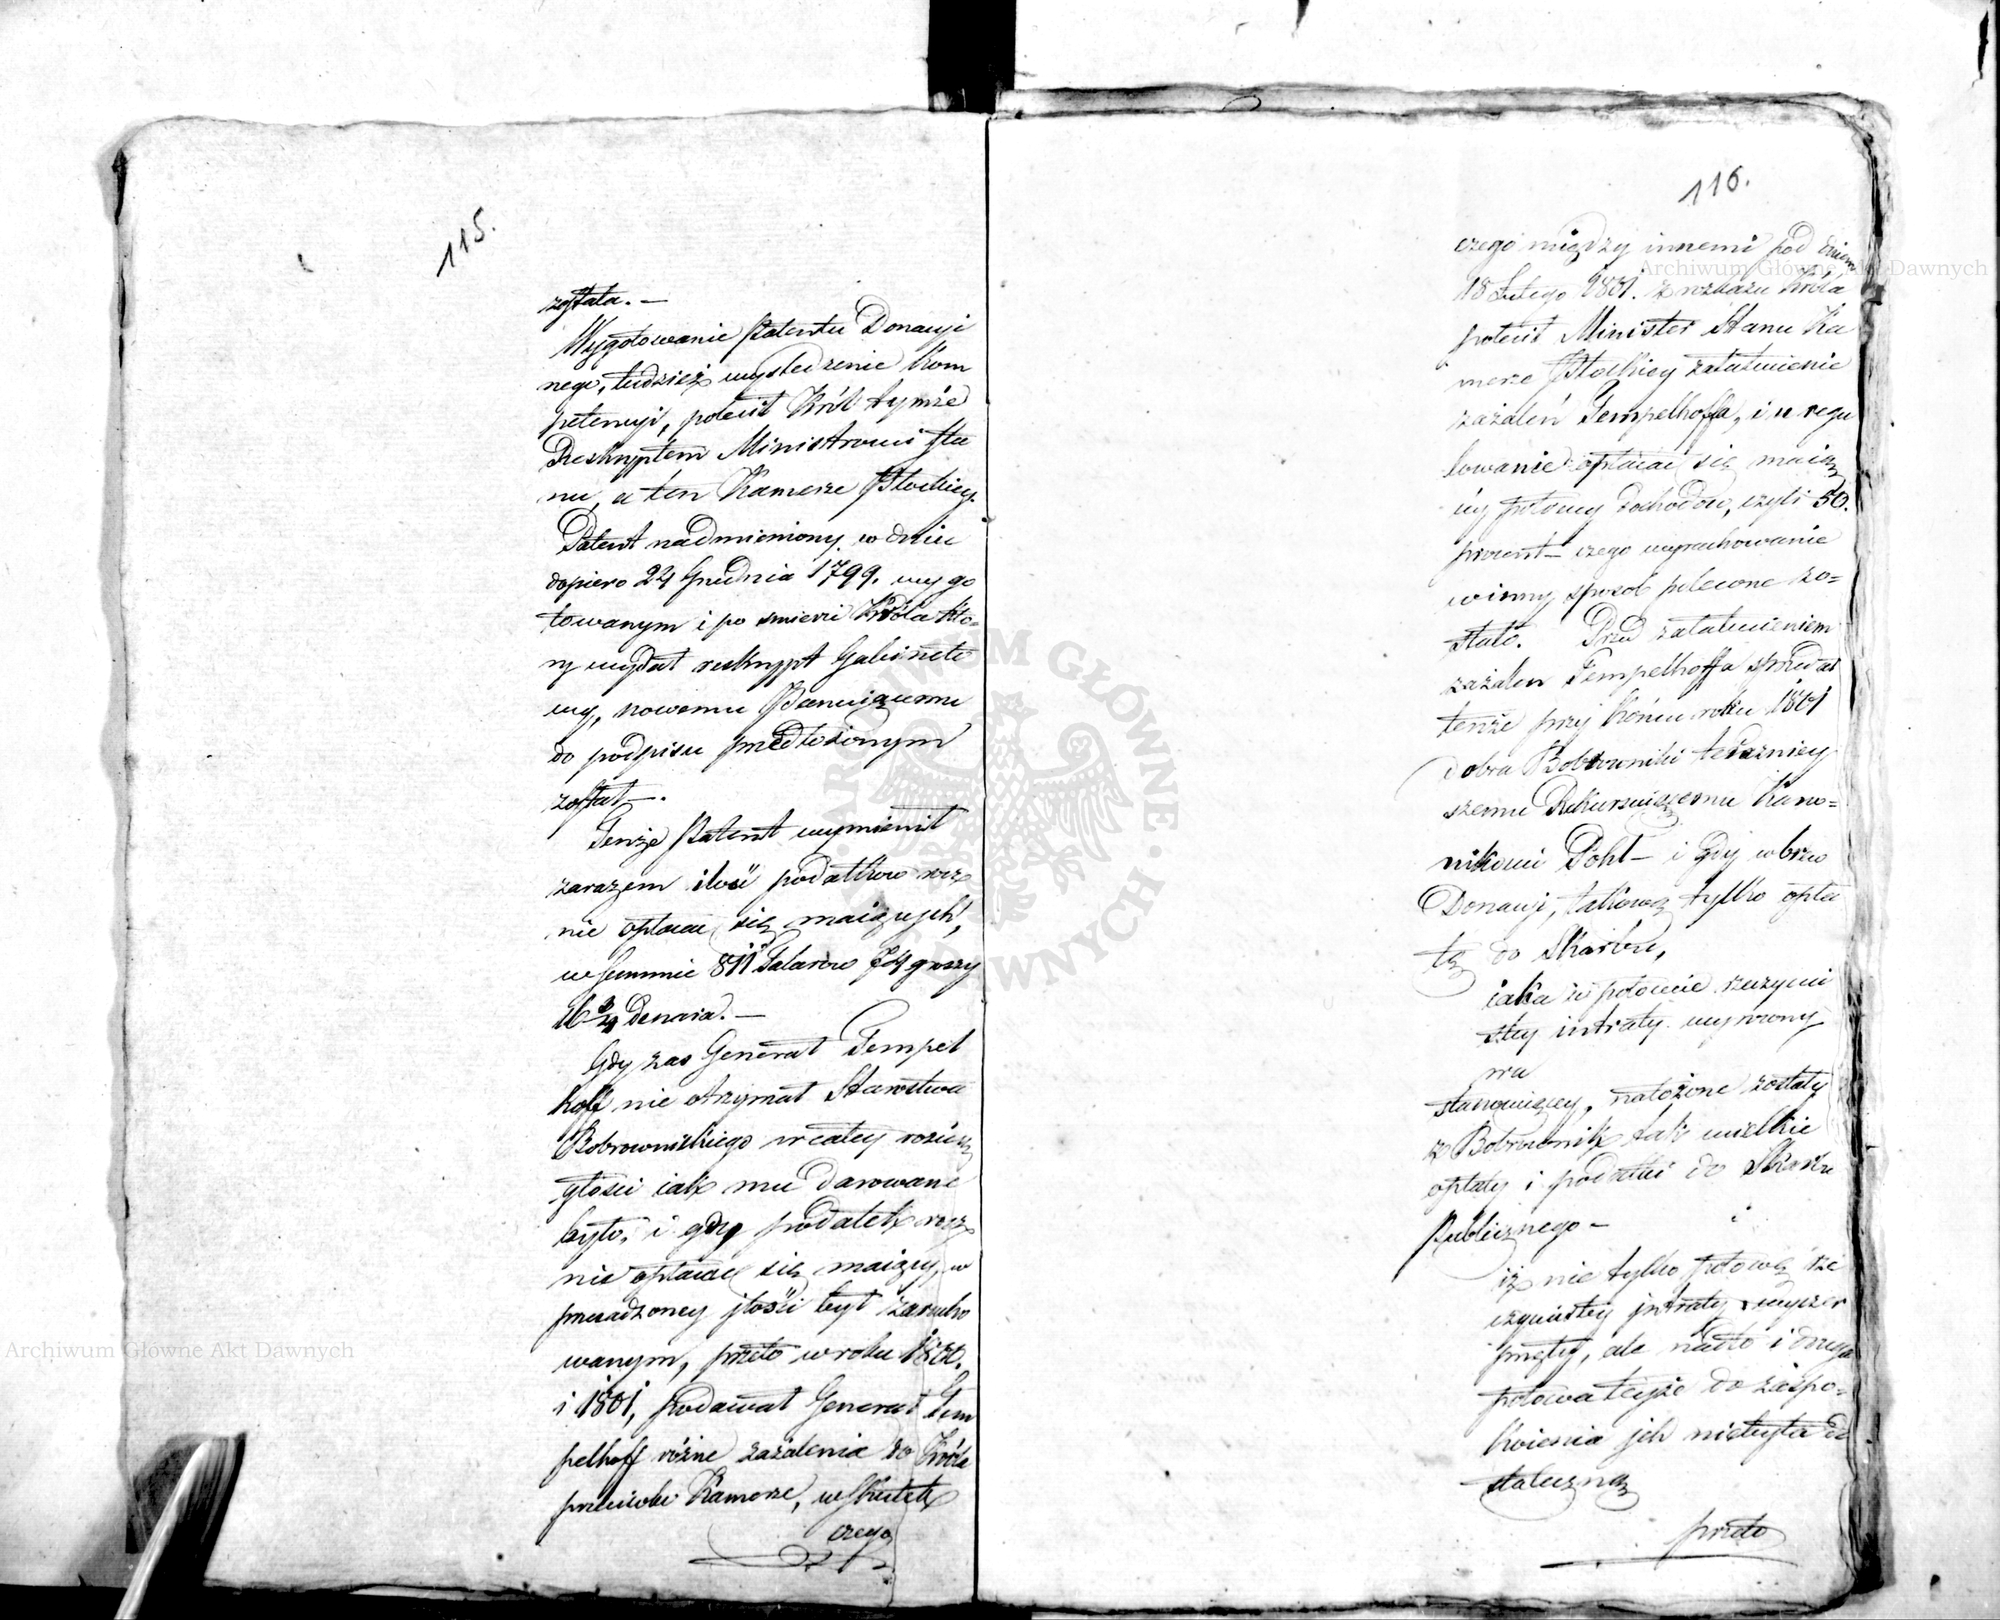 115.
została. —
Wygotowanie Patentu Donacyi
nego, tudzież wyśledzenie Kom
petencyi, polecił Król tymże
Reskryptem Ministrowi Sta
nu, a ten Kamerze Płockiey.
Patent nadmieniony w dniu
dopiero 24 Grudnia 1799. wygo
towanym i po śmierci Króla któ-
ry wydał reskrypt Gabineto
wy, nowemu Panuiącemu
do podpisu przedłożonym
został —.
Tenże Patent wymienił
zarazem ilość podatków rocz
nie opłacać się maiących,
w summie 811 Talarów groszy
16 3/4 Denara. —
Gdy zaś Generał Tempel
hoff nie otrzymał Starostwa
Bobrownickiego w całey rozcią
głości iak mu darowane
było, i gdy podatek rocz
nie opłacać się maiący, w
przesadzoney ilości był zaracho
wanym, przeto w roku 1800.
i 1801, podawał Generał Tem
pelhoff różne zażalenia do Króla
przeciwko Kamerze, w skutek
czego
116.
czego między innemi pod dniem
18 Lutego 1801. z rozkazu Króla
polecił Minister Stanu Ka
merze Płockiey załatwienie
zażaleń Tempelhoffa, i u regu
lowanie opłacać się maią
cy połowy dochodów, czyli 50.
procent — czego wyrachowanie
w inny sposób polecone zo-
stało. Przed załatwieniem
zażaleń Tempelhoffa sprzedał
tenże przy końcu roku 1801
dobra Bobrowniki teraźniey
szemu Rekursuiącemu Kano-
nikowi Pohl — i Gdy wbrew
Donacyi, takową tylko opła
tę do Skarbu,
iaka się połowie rzeczywi
stey intraty wyrowny
wa
stanowiącey, nałożone zostały
z Bobrownik tak wielkie
opłaty i podatki do Skarbu
Publicznego — i
iż nie tylko połowę rze
czywistey intraty wyczer
pnęły, ale nadto i druga
połowa teyże do zaspo-
koienia ich niebyła do
stateczną
przeto
Archiwum Główne Akt Dawnych
Archiwum Główne Akt Dawnych
ARCHIWUM GŁÓWNE AKT DAWNYCH